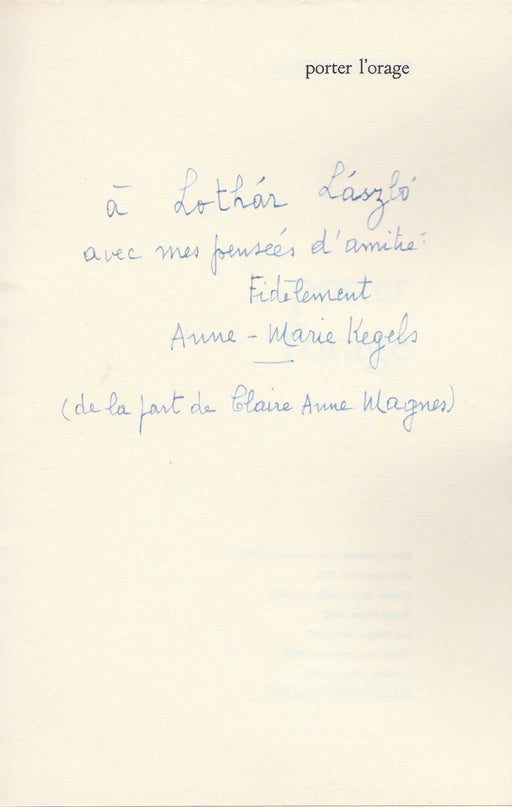 porter l'orage
à Lothár László
avec mes pensées d'amitié.
Fidèlement
Anne-Marie Kegels
(de la part de Claire Anne Magnes)